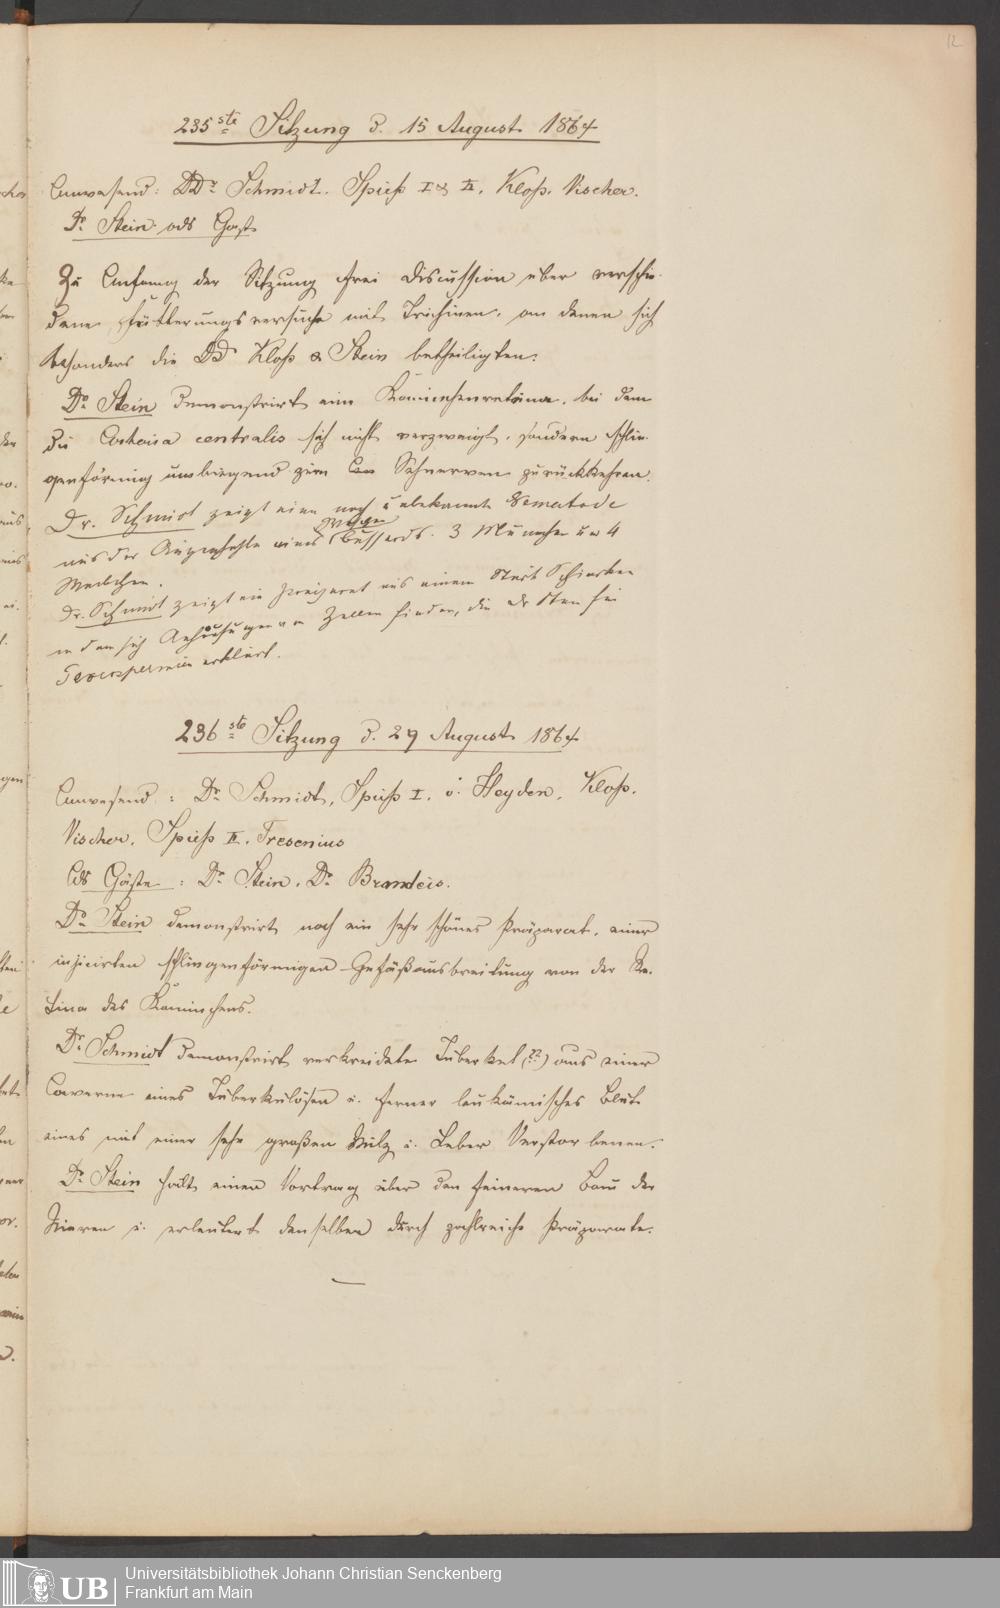 12
235ste Sitzung d. 15 August 1864
Anwesend: DDr Schmidt. Spieß I & II. Kloß. Vischer.
Dr. Stein als Gast
Zu Anfang der Sitzung frei Discussion über verschie-
dene Fütterungsversuche mit Trichinen, an denen sich
besonders die DD Kloß & Stein betheiligten.
Dr. Stein demonstrirt eine Kaninchenretina, bei dem
die Arteria centralis sich nicht verzweigt, sondern schlin-
genförmig umbiegend zum Sehnerven zurückkehren.
Dr. Schmidt zeigt eine noch unbekannte Nematode
aus der Augenhöhle eines Bussards. 3 Männchen u 4
Weibchen.
Dr. Schmidt zeigt ein Präparat aus einem Stück Schinken
in dem sich Anhäufungen von Zellen finden, die Dr Stein für
erklärt.
236ste Sitzung d. 29 August 1864
Anwesend: Dr. Schmidt, Spieß I. v. Heyden. Kloß.
Vischer. Spieß II. Fresenius
Als Gäste: Dr. Stein. Dr. Brandeis.
Dr. Stein demonstrirt noch ein sehr schönes Präparat, einer
injicirten schlingenförmigen Gefäßausbreitung von der Re-
tina des Kaninchens.
Dr. Schmidt demonstrirt verkreidete Tuberkel (??) aus einer
Caverne eines Tuberkulösen u. ferner leukämisches Blut
eines mit einer sehr großen Milz u. Leber Verstorbenen.
Dr. Stein hält einen Vortrag über den feineren Bau der
Nieren u. erleutert denselben durch zahlreiche Präparate.
UB
Universitätsbibliothek Johann Christian Senckenberg
Frankfurt am Main